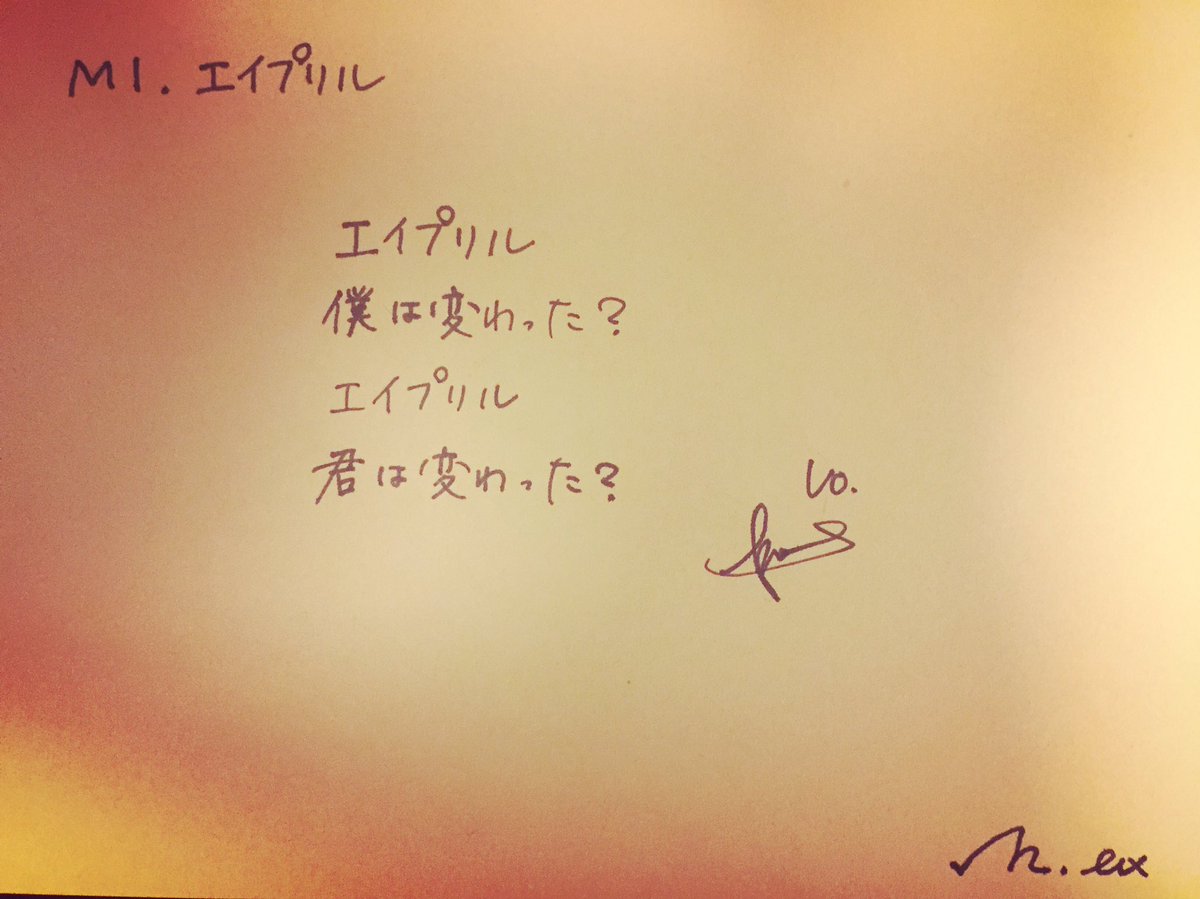 M1. エイプリル
エイプリル
僕は変わった?
エイプリル
君は変わった?
Vo.